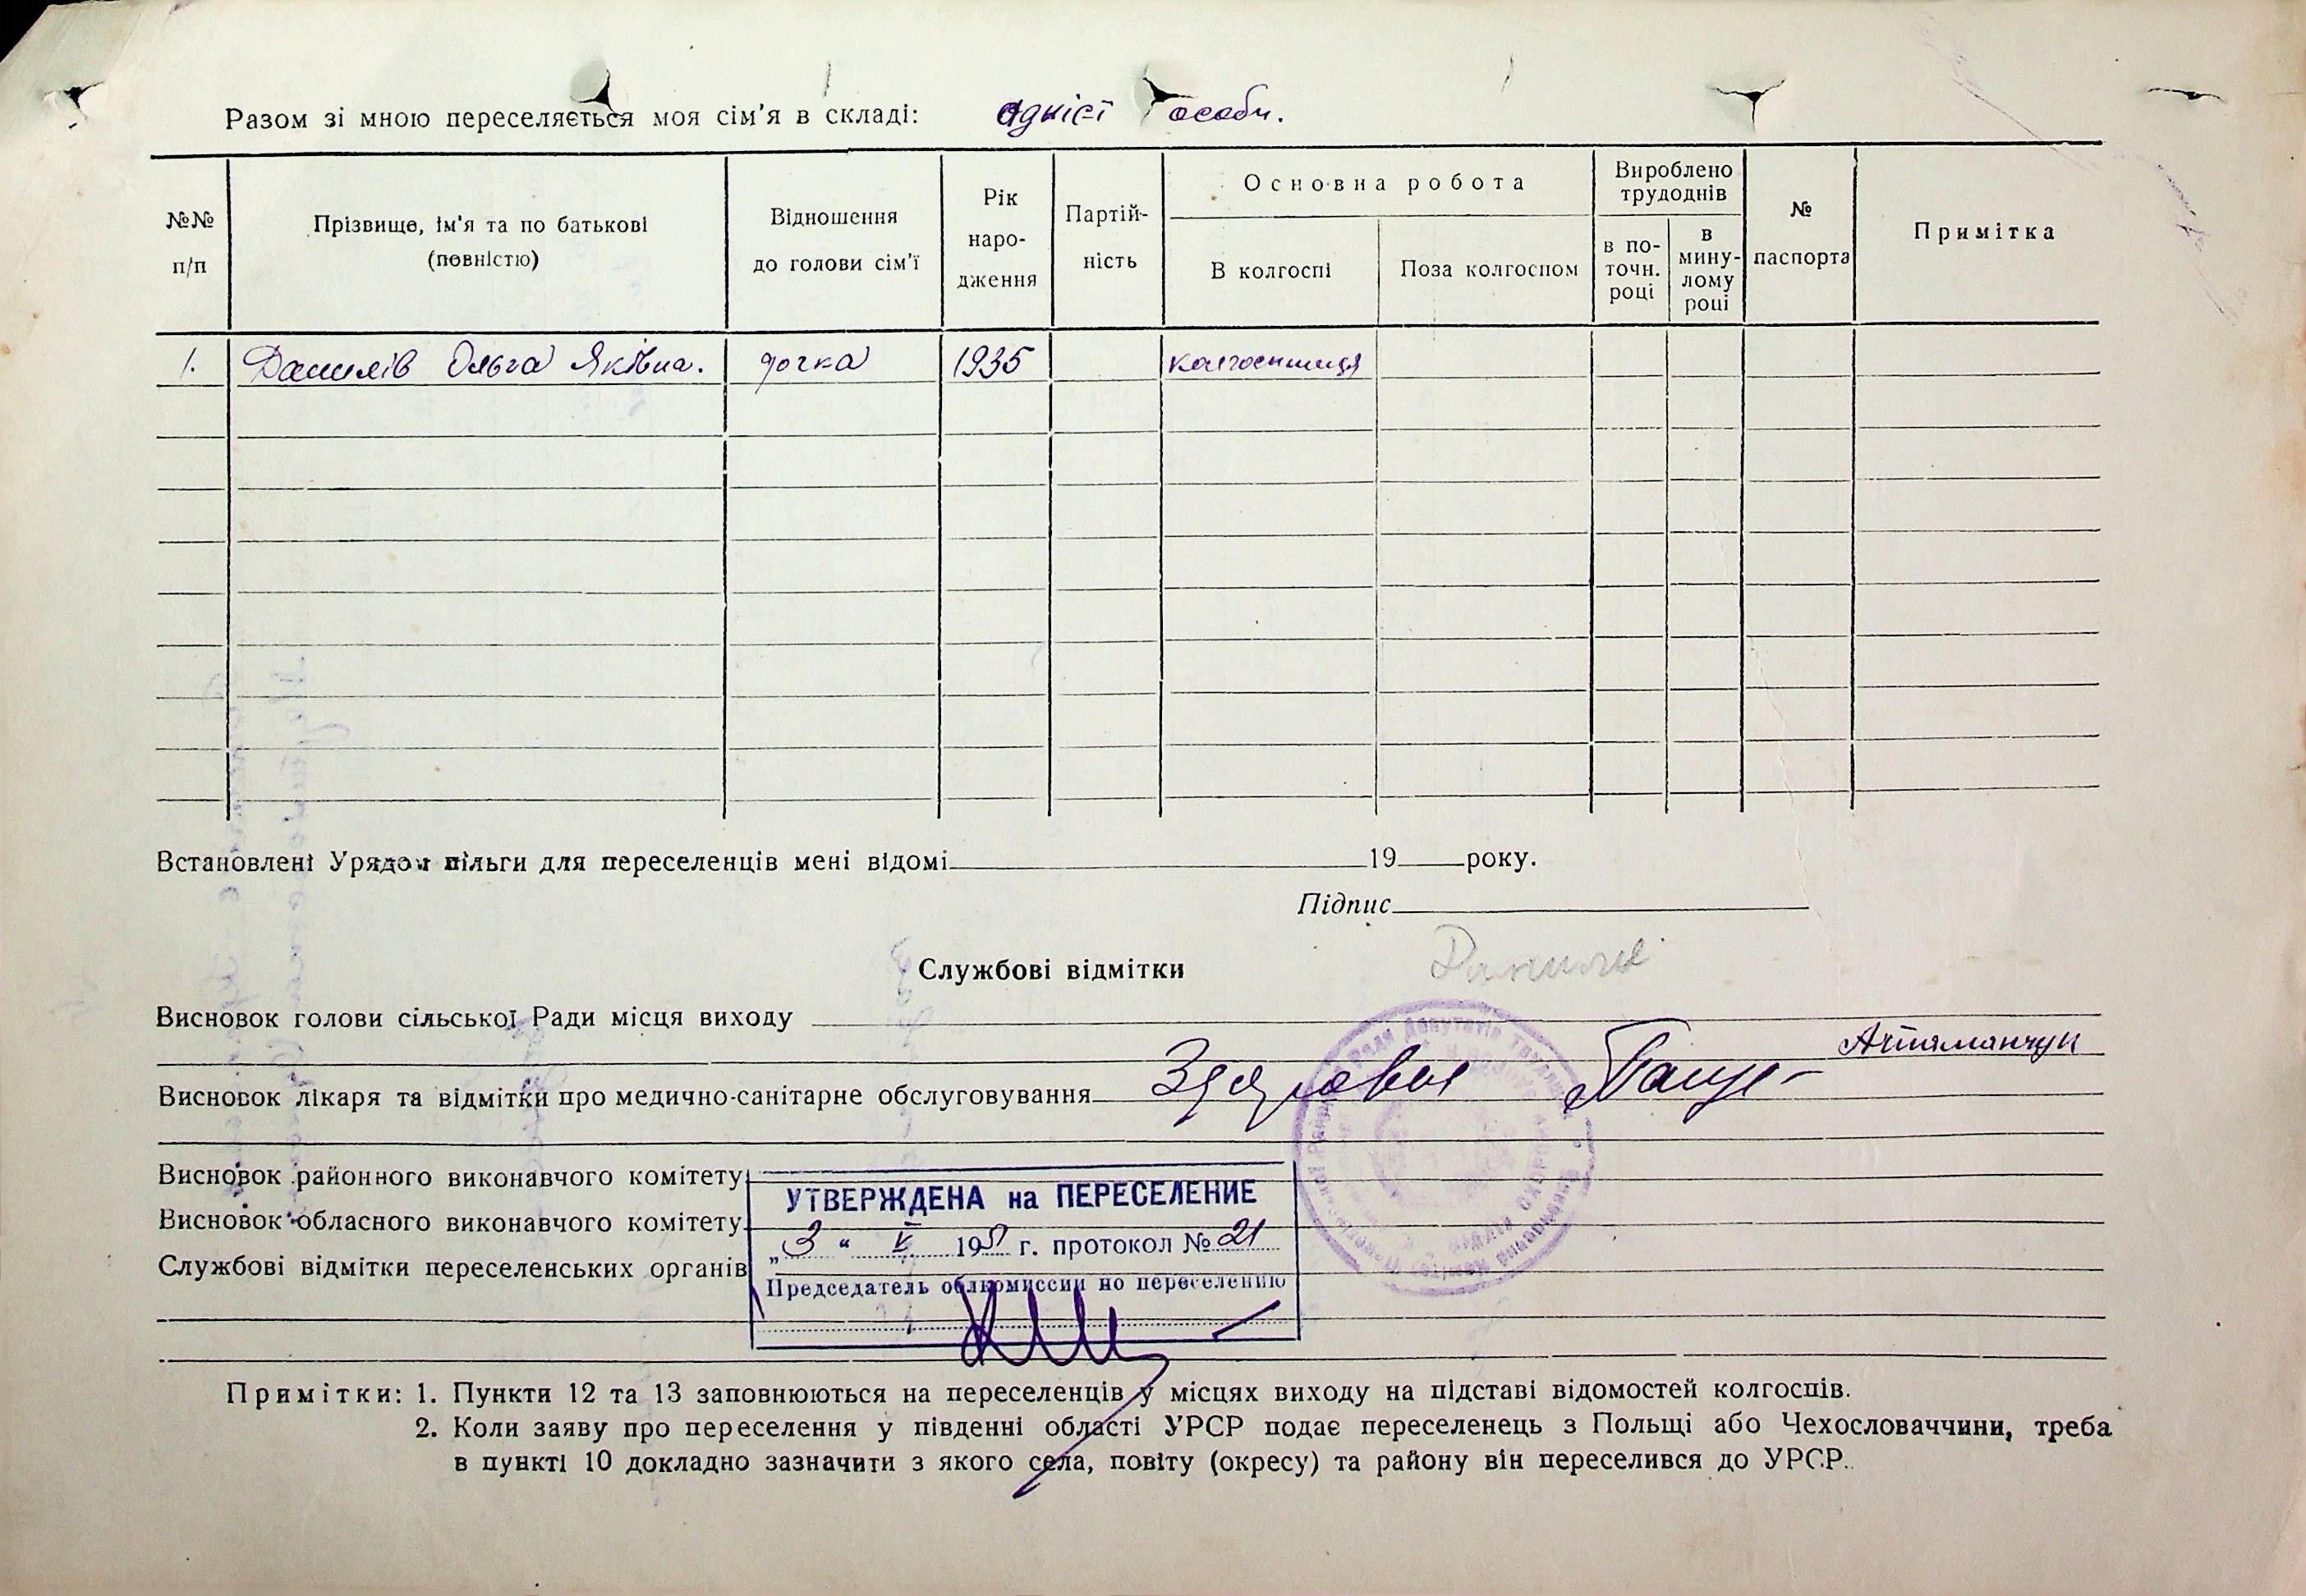 Разом зі мною переселяється моя сім'я в складі: однієї особи.
№№ п/п
Прізвище, ім'я та по батькові (повністю)
Відношення до голови сім'ї
Рік наро-дження
Партій-ність
Основна робота
В колгоспі
Поза колгоспом
Вироблено трудоднів
в по-точн. році
в мину-лому році
№ паспорта
Примітка
1. Данилів Ольга Яківна. дочка 1935 колгоспниця
Встановлені Урядом пільги для переселенців мені відомі 19 року.
Підпис
Службові відмітки Данилів
Висновок голови сільської Ради місця виходу
Атаманчук
Висновок лікаря та відмітки про медично-санітарне обслуговування Здорові
Висновок районного виконавчого комітету
УТВЕРЖДЕНА на ПЕРЕСЕЛЕНИЕ
Висновок обласного виконавчого комітету
„3“ V 1951 г. протокол № 21
Службові відмітки переселенських органів
Председатель облкомиссии по переселению
Примітки: 1. Пункти 12 та 13 заповнюються на переселенців у місцях виходу на підставі відомостей колгоспів.
2. Коли заяву про переселення у південні області УРСР подає переселенець з Польщі або Чехословаччини, треба
в пункті 10 докладно зазначити з якого села, повіту (окресу) та району він переселився до УРСР.